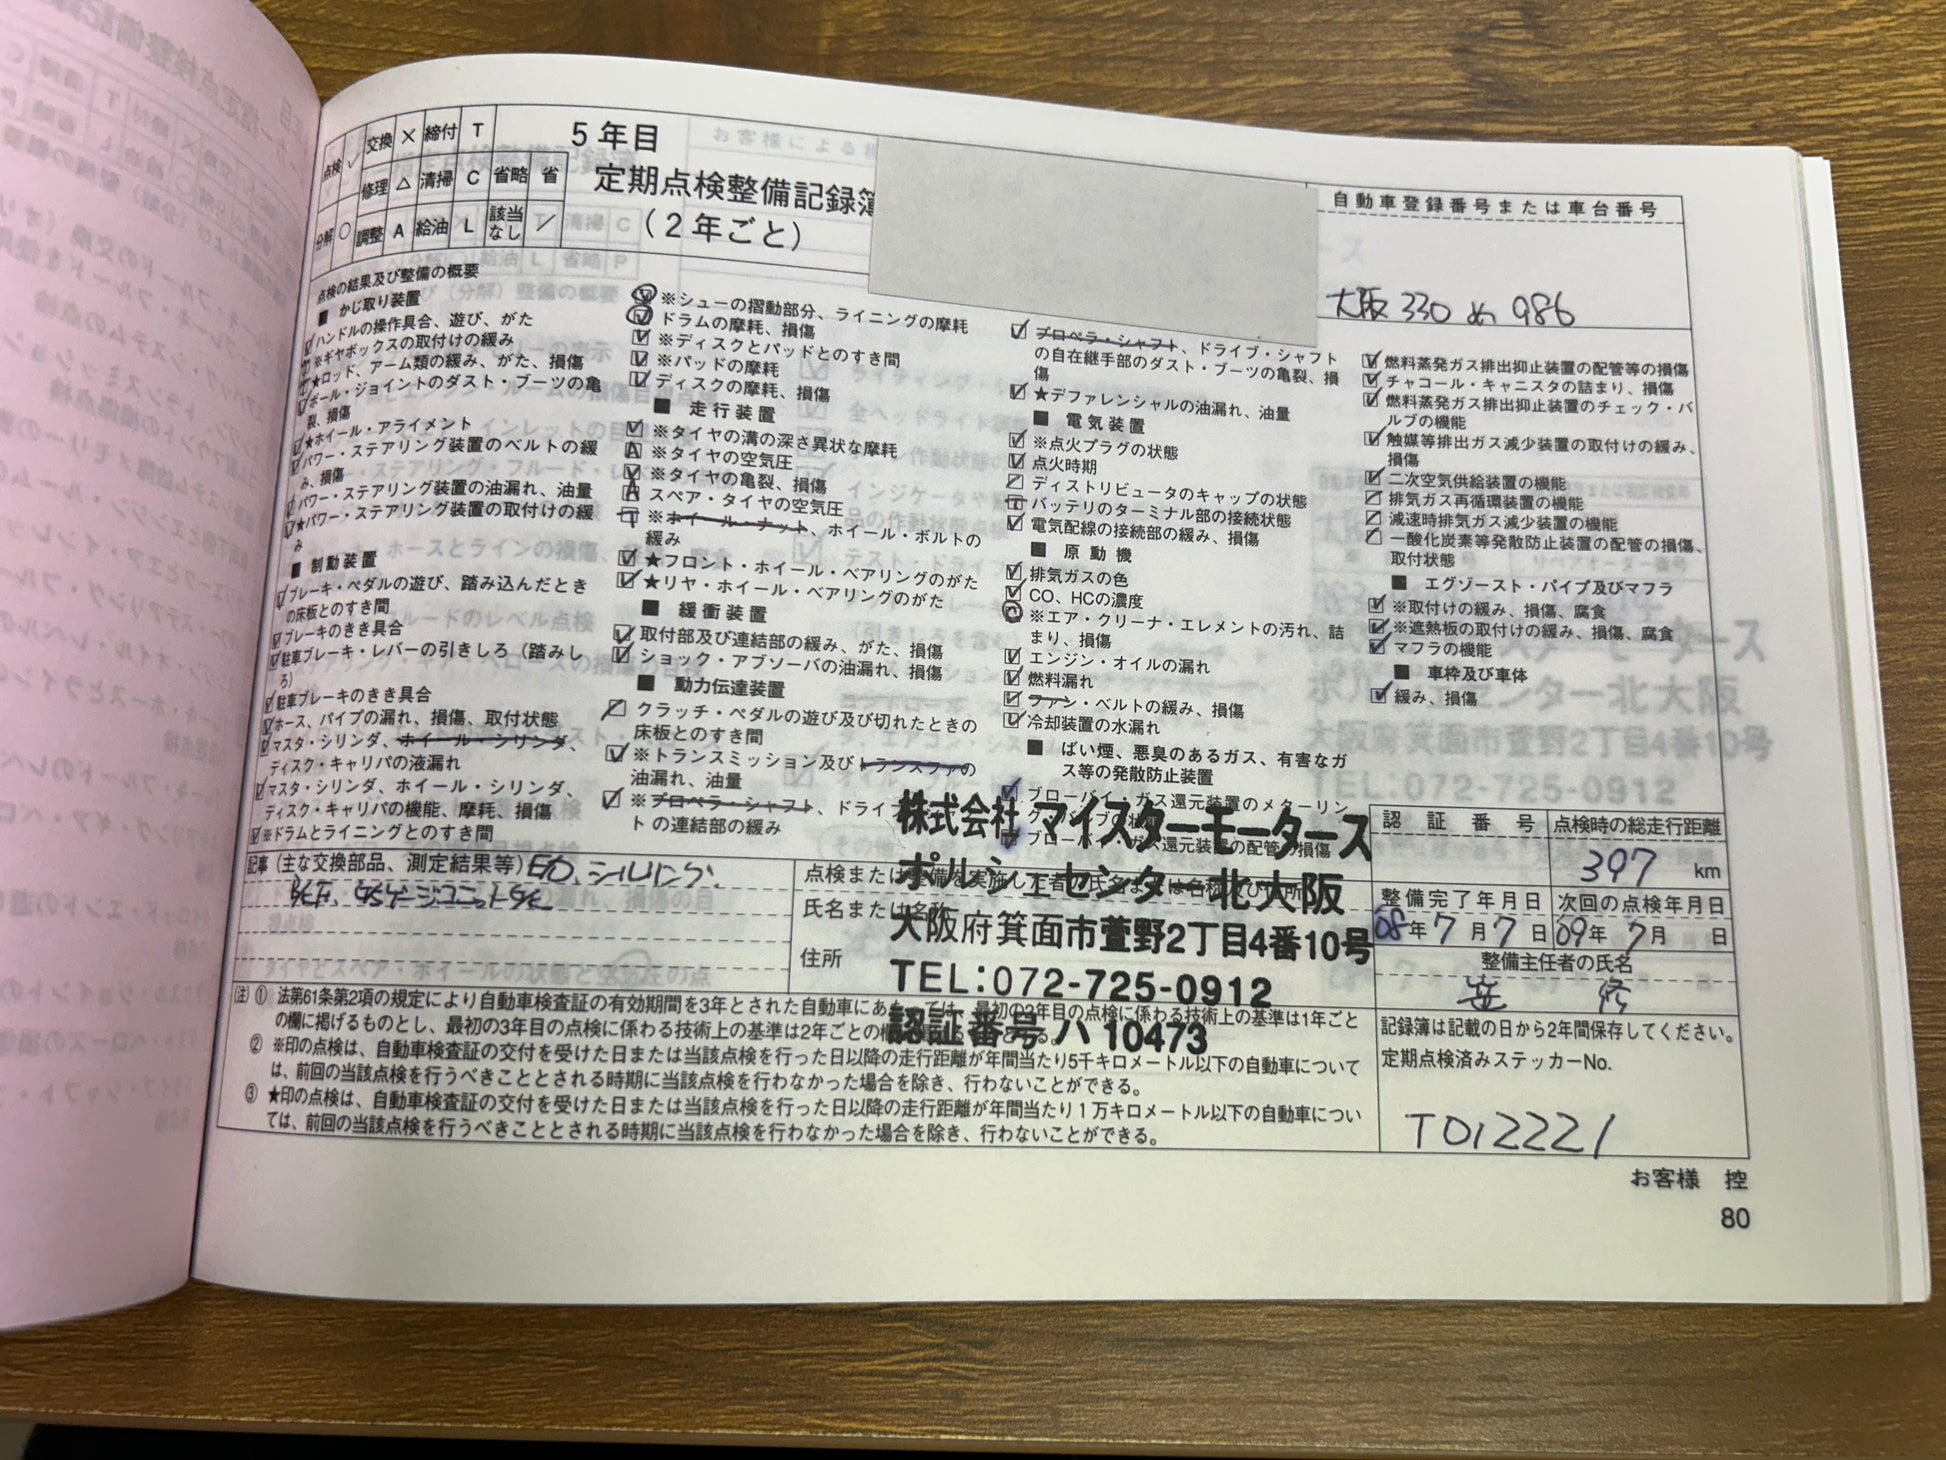 点検 ✓ 交換 × 締付 T
修理 △ 清掃 C 省略 省
分解 ○ 調整 A 給油 L 該当なし /
5年目
定期点検整備記録簿
(2年ごと)
自動車登録番号または車台番号
大阪 330 め 986
点検の結果及び整備の概要
■ かじ取り装置
ハンドルの操作具合、遊び、がた
※ギヤボックスの取付けの緩み
★ロッド、アーム類の緩み、がた、損傷
ボール・ジョイントのダスト・ブーツの亀
裂、損傷
★ホイール・アライメント
パワー・ステアリング装置のベルトの緩
み、損傷
パワー・ステアリング装置の油漏れ、油量
★パワー・ステアリング装置の取付けの緩
み
■ 制動装置
ブレーキ・ペダルの遊び、踏み込んだとき
の床板とのすき間
ブレーキのきき具合
駐車ブレーキ・レバーの引きしろ(踏みし
ろ)
駐車ブレーキのきき具合
ホース、パイプの漏れ、損傷、取付状態
マスタ・シリンダ、ホイール・シリンダ、
ディスク・キャリパの液漏れ
マスタ・シリンダ、ホイール・シリンダ、
ディスク・キャリパの機能、摩耗、損傷
※ドラムとライニングとのすき間
※シューの摺動部分、ライニングの摩耗
ドラムの摩耗、損傷
※ディスクとパッドとのすき間
※パッドの摩耗
ディスクの摩耗、損傷
■ 走行装置
※タイヤの溝の深さ異状な摩耗
A ※タイヤの空気圧
※タイヤの亀裂、損傷
A スペア・タイヤの空気圧
T ※ホイール・ナット、ホイール・ボルトの
緩み
★フロント・ホイール・ベアリングのがた
★リヤ・ホイール・ベアリングのがた
■ 緩衝装置
取付部及び連結部の緩み、がた、損傷
ショック・アブソーバの油漏れ、損傷
■ 動力伝達装置
クラッチ・ペダルの遊び及び切れたときの
床板とのすき間
※トランスミッション及びトランスファの
油漏れ、油量
※プロペラ・シャフト、ドライブ
トの連結部の緩み
プロペラ・シャフト、ドライブ・シャフト
の自在継手部のダスト・ブーツの亀裂、損
傷
★デファレンシャルの油漏れ、油量
■ 電気装置
※点火プラグの状態
点火時期
ディストリビュータのキャップの状態
T バッテリのターミナル部の接続状態
電気配線の接続部の緩み、損傷
■ 原動機
排気ガスの色
CO、HCの濃度
※エア・クリーナ・エレメントの汚れ、詰
まり、損傷
エンジン・オイルの漏れ
燃料漏れ
ファン・ベルトの緩み、損傷
冷却装置の水漏れ
■ ばい煙、悪臭のあるガス、有害なガ
ス等の発散防止装置
ブローバイ・ガス還元装置のメターリン
グ・バルブの状態
ブローバイ・ガス還元装置の配管の損傷
燃料蒸発ガス排出抑止装置の配管等の損傷
チャコール・キャニスタの詰まり、損傷
燃料蒸発ガス排出抑止装置のチェック・バ
ルブの機能
触媒等排出ガス減少装置の取付けの緩み、
損傷
二次空気供給装置の機能
排気ガス再循環装置の機能
減速時排気ガス減少装置の機能
一酸化炭素等発散防止装置の配管の損傷、
取付状態
■ エグゾースト・パイプ及びマフラ
※取付けの緩み、損傷、腐食
※遮熱板の取付けの緩み、損傷、腐食
マフラの機能
■ 車枠及び車体
緩み、損傷
記事(主な交換部品、測定結果等)
点検または整備を実施した者の氏名または名称及び住所
氏名または名称
住所
株式会社 マイスターモータース
ポルシェセンター北大阪
大阪府箕面市萱野2丁目4番10号
TEL:072-725-0912
認証番号 ハ 10473
認証番号 点検時の総走行距離
397 km
整備完了年月日 次回の点検年月日
08年7月7日 09年7月 日
整備主任者の氏名
記録簿は記載の日から2年間保存してください。
定期点検済みステッカーNo.
T012221
(注) ① 法第61条第2項の規定により自動車検査証の有効期間を3年とされた自動車にあたっては、最初の2年目の点検に係わる技術上の基準は1年ごと
の欄に掲げるものとし、最初の3年目の点検に係わる技術上の基準は2年ごとの欄
② ※印の点検は、自動車検査証の交付を受けた日または当該点検を行った日以降の走行距離が年間当たり5千キロメートル以下の自動車について
は、前回の当該点検を行うべきこととされる時期に当該点検を行わなかった場合を除き、行わないことができる。
③ ★印の点検は、自動車検査証の交付を受けた日または当該点検を行った日以降の走行距離が年間当たり1万キロメートル以下の自動車につい
ては、前回の当該点検を行うべきこととされる時期に当該点検を行わなかった場合を除き、行わないことができる。
お客様 控
80